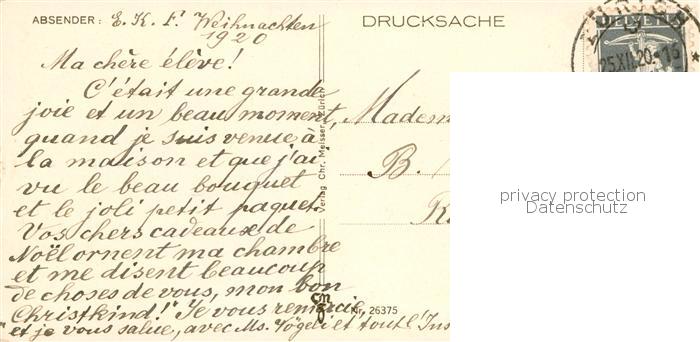 ABSENDER: E. K. F! Weihnachten
1920
DRUCKSACHE
HELVETIA
25.XII.20.-16
Ma chère élève!
C'était une grande
joie et un beau moment,
quand je suis venue à
la maison et que j'ai
vu le beau bouquet
et le joli petit paquet.
Vos chers cadeaux de
Noël ornent ma chambre
et me disent beaucoup
de choses de vous, mon bon
Christkind! Je vous remercie,
et je vous salue, avec Ms. Vögeli et tout l'Ins
Verlag Chr. Meisser, Zürich
cm
Nr. 26375
Madem
B.
privacy protection
Datenschutz